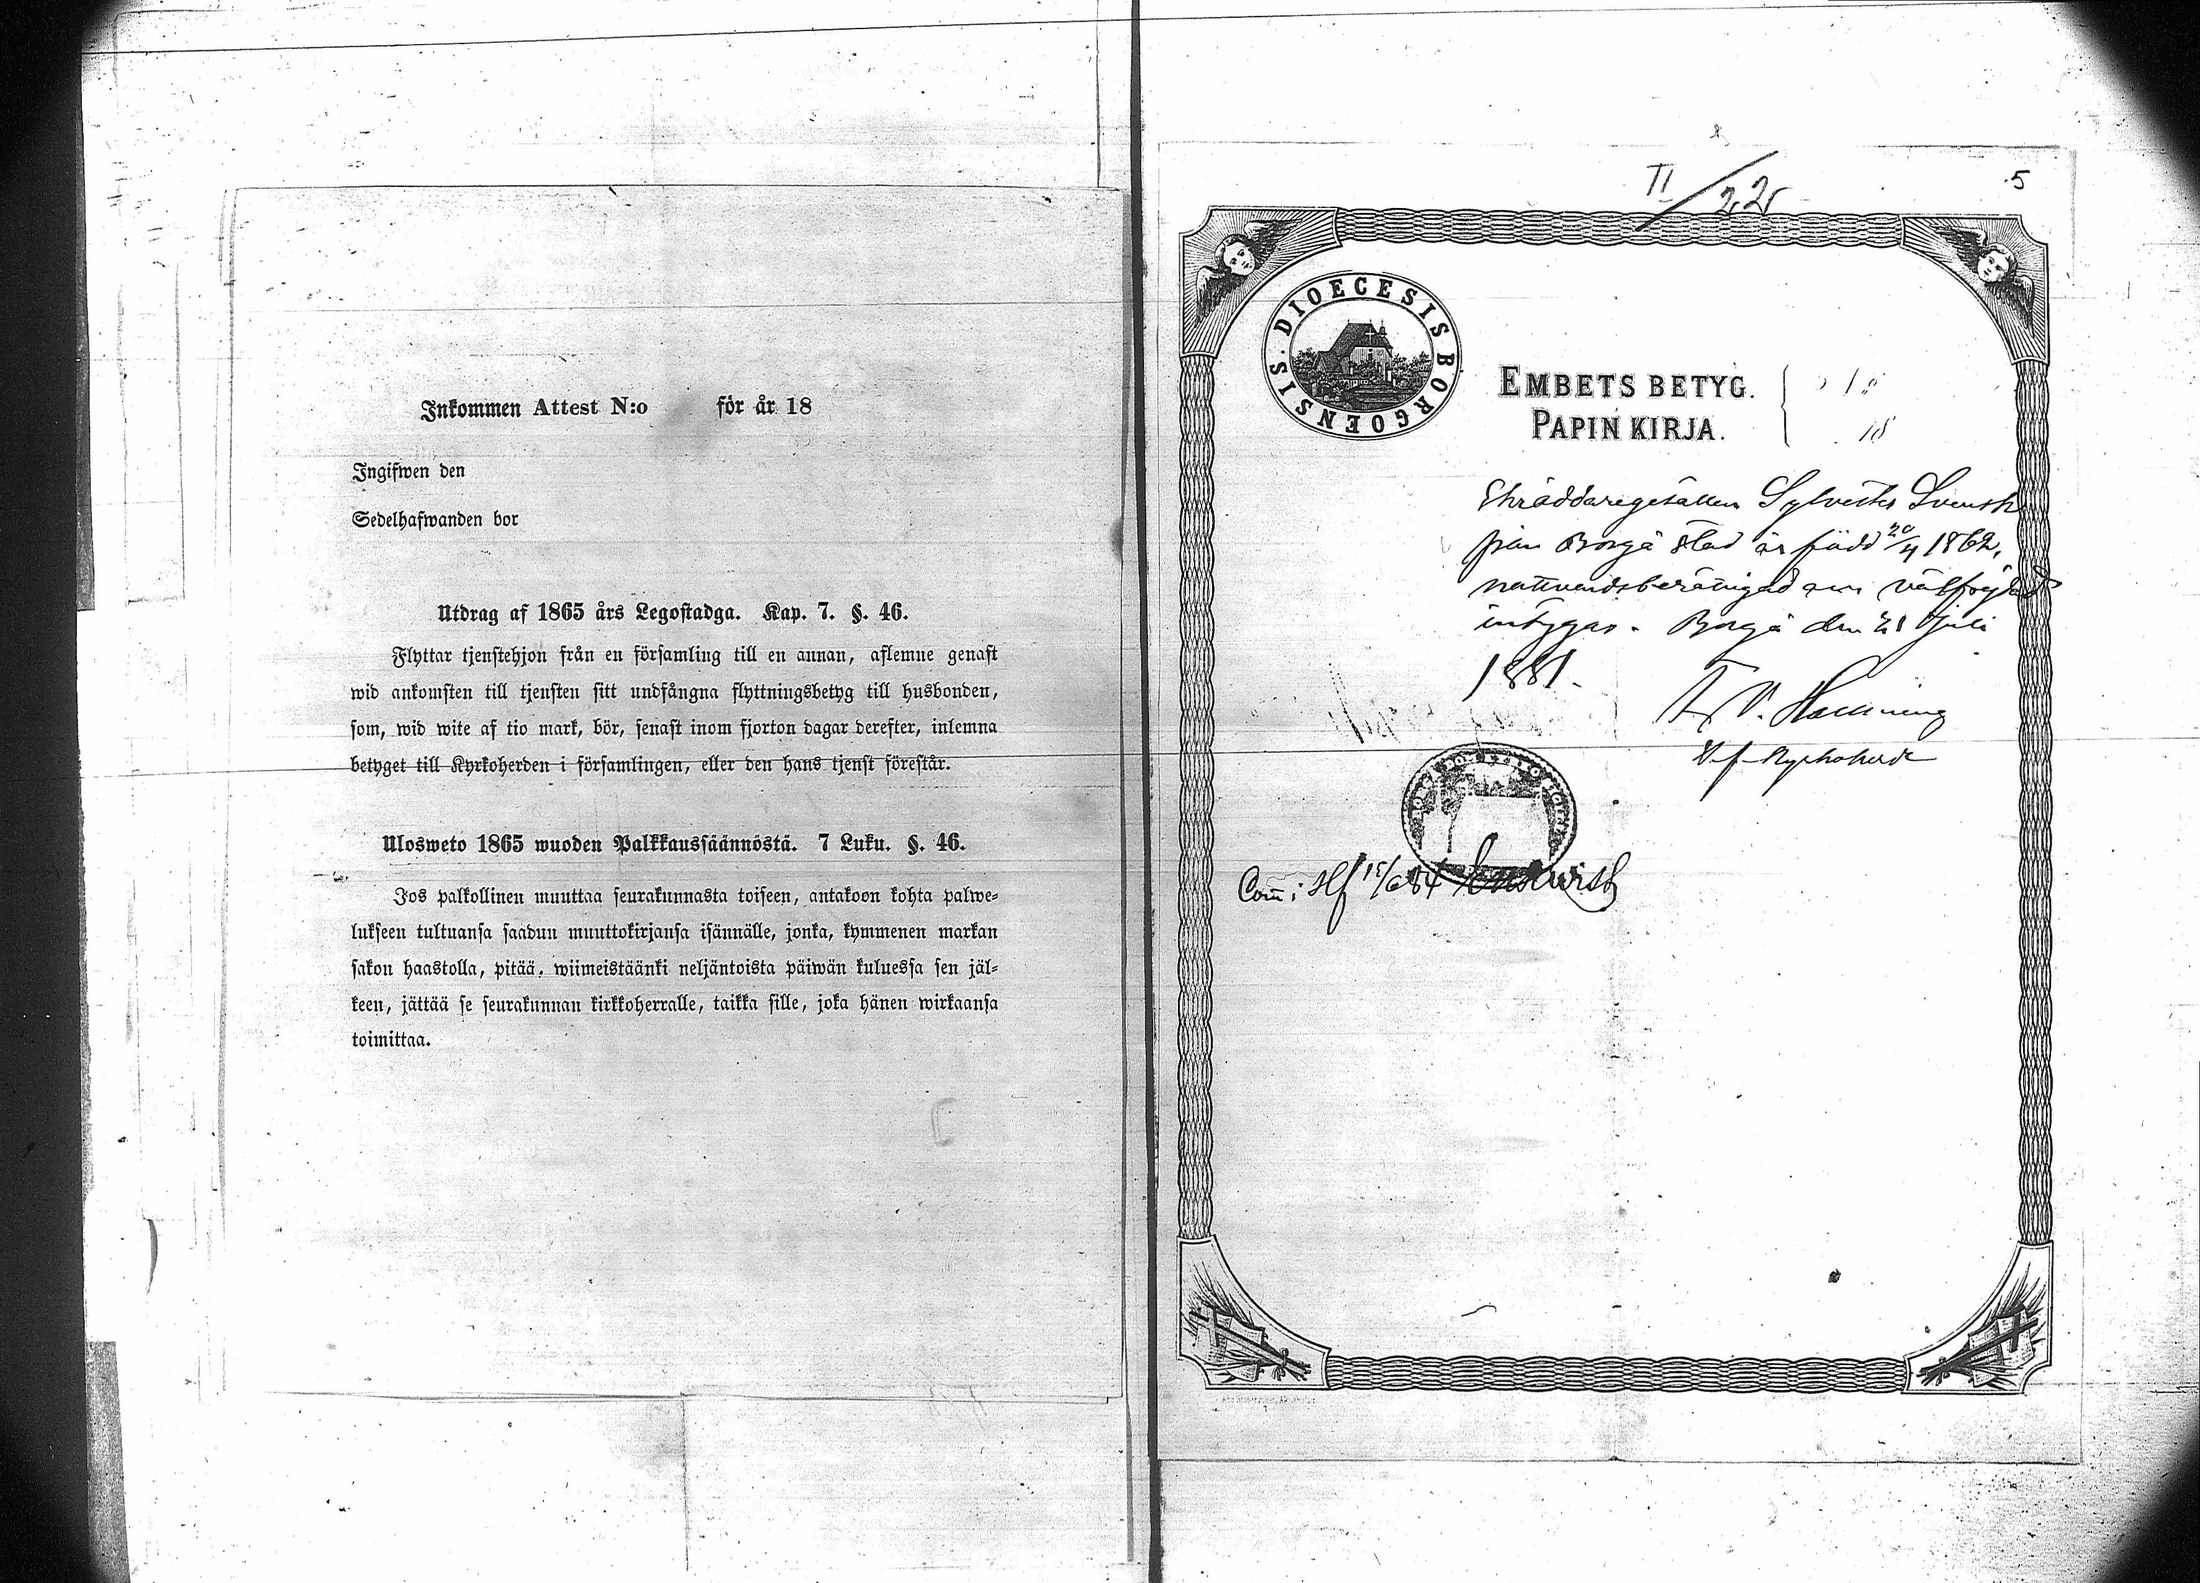 Inkommen Attest N:o för år 18
Ingifwen den
Sedelhafwanden bor
Utdrag af 1865 års Legostadga. Kap. 7. §. 46.
Flyttar tjenstehjon från en församling till en annan, aflemne genast
wid ankomsten till tjensten sitt undfångna flyttningsbetyg till husbonden,
som, wid wite af tio mark, bör, senast inom fjorton dagar derefter, inlemna
betyget till Kyrkoherden i församlingen, eller den hans tjenst förestår.
Ulosweto 1865 wuoden Palkkaussäännöstä. 7 Luku. §. 46.
Jos palkollinen muuttaa seurakunnasta toiseen, antakoon kohta palwe-
lukseen tultuansa saadun muuttokirjansa isännälle, jonka, kymmenen markan
sakon haastolla, pitää, wiimeistäänki neljäntoista päiwän kuluessa sen jäl-
keen, jättää se seurakunnan kirkkoherralle, taikka sille, joka hänen wirkaansa
toimittaa.
II/22
5
DIOECESIS BORGOENSIS.
EMBETS BETYG.
PAPIN KIRJA.
18
Skräddaregesällen Sylvester Svensk
från Borgå stad är född 20/4 1862,
nattvardsberättigad och välfrejdad
intygas. Borgå den 21 Juli
1881.
V. Hou
v. f. Kyrkoherde
Com: Hf 15/6 84